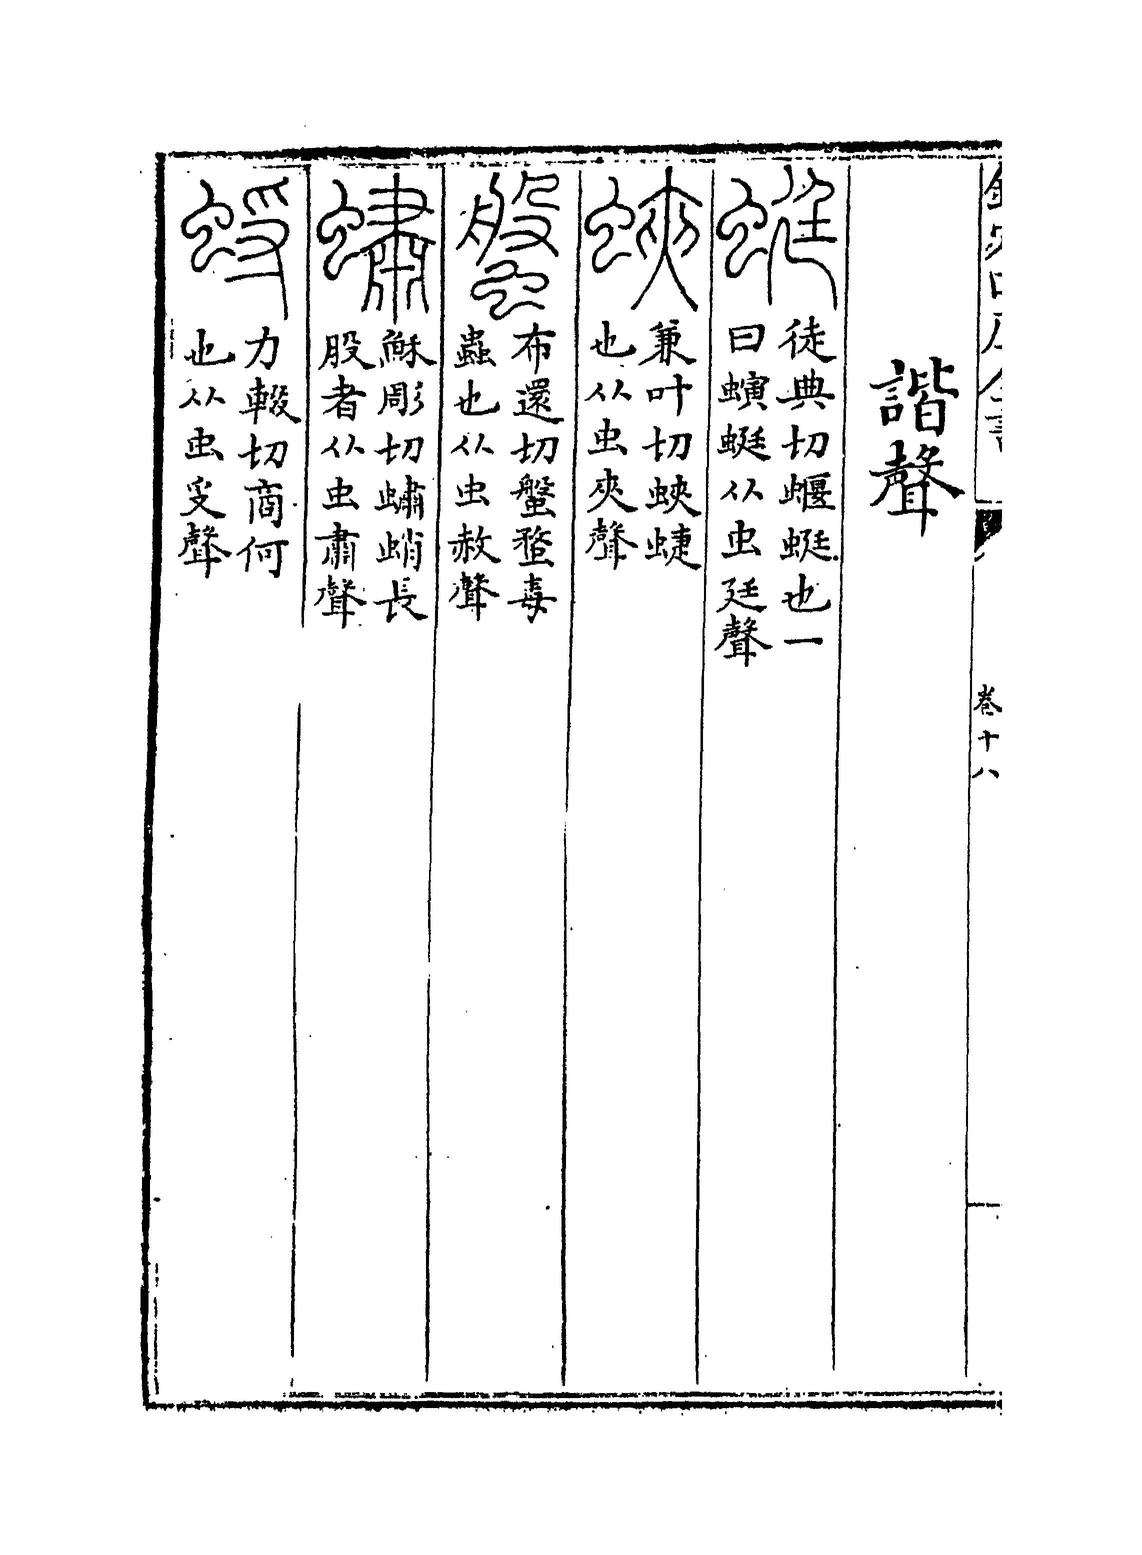 欽定四庫全書
卷十八
諧聲
蜓
徒典切蝘蜓也一
曰螾蜓从虫廷聲
蛺
兼叶切蛺蜨
也从虫夾聲
螌
布還切螌蝥毒
蟲也从虫般聲
蟰
穌彫切蟰蛸長
股者从虫肅聲
蛶
力輟切商何
也从虫寽聲